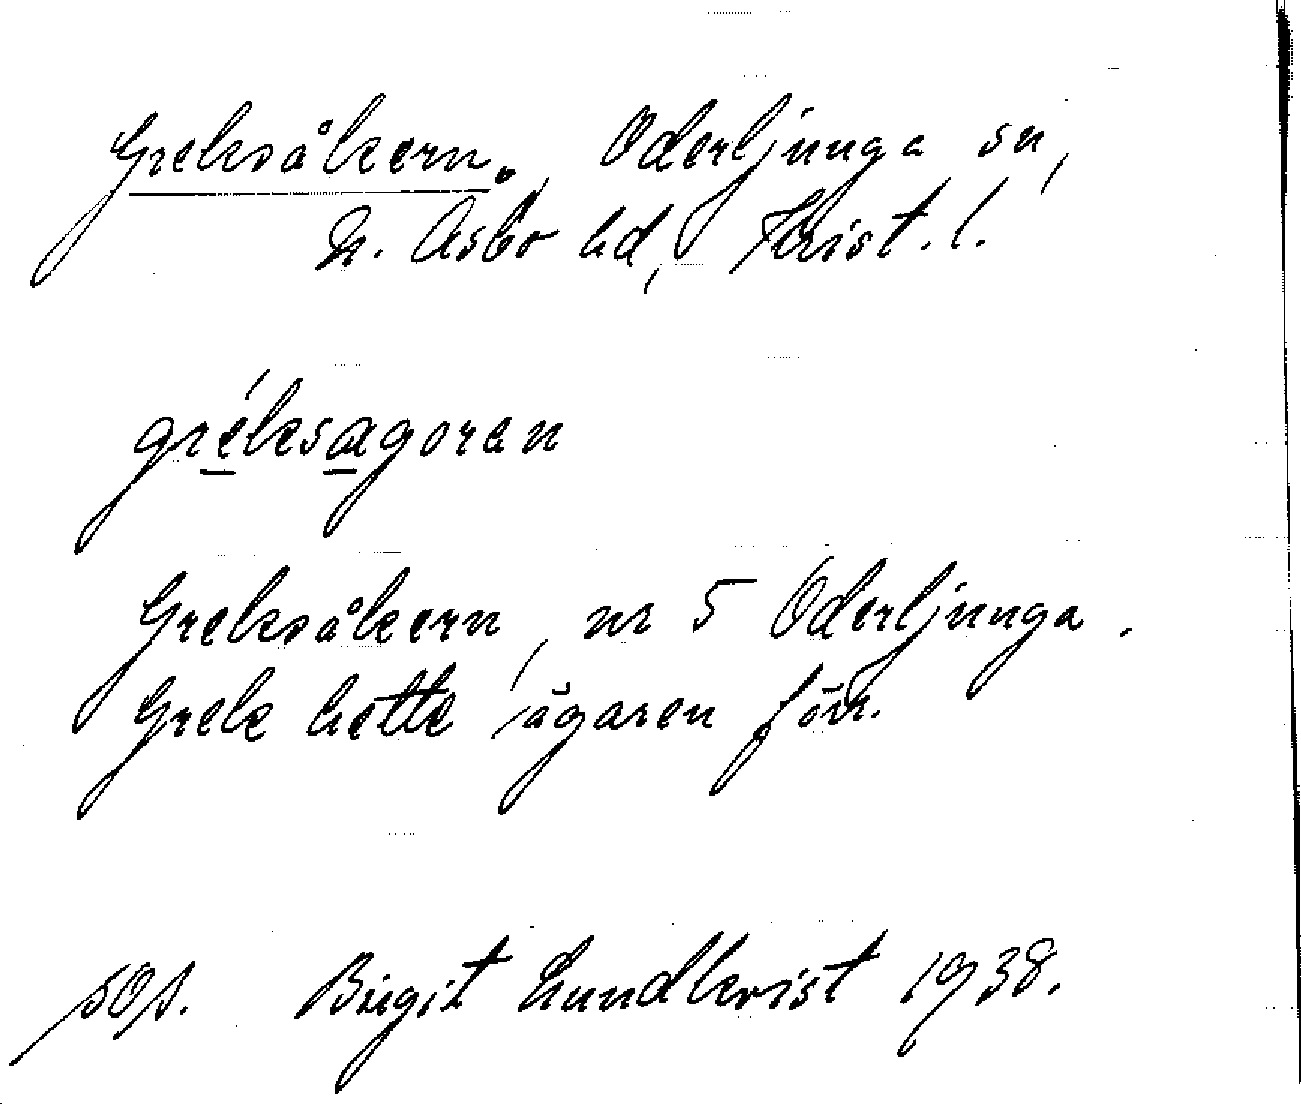 Greksåkern., Oderljunga sn,
N. Åsbo hd, Krist. l.
gréksagoran
Greksåkern, nr 5 Oderljunga.
Grek hette ägaren förr.
Birgit Lundkvist 1938.